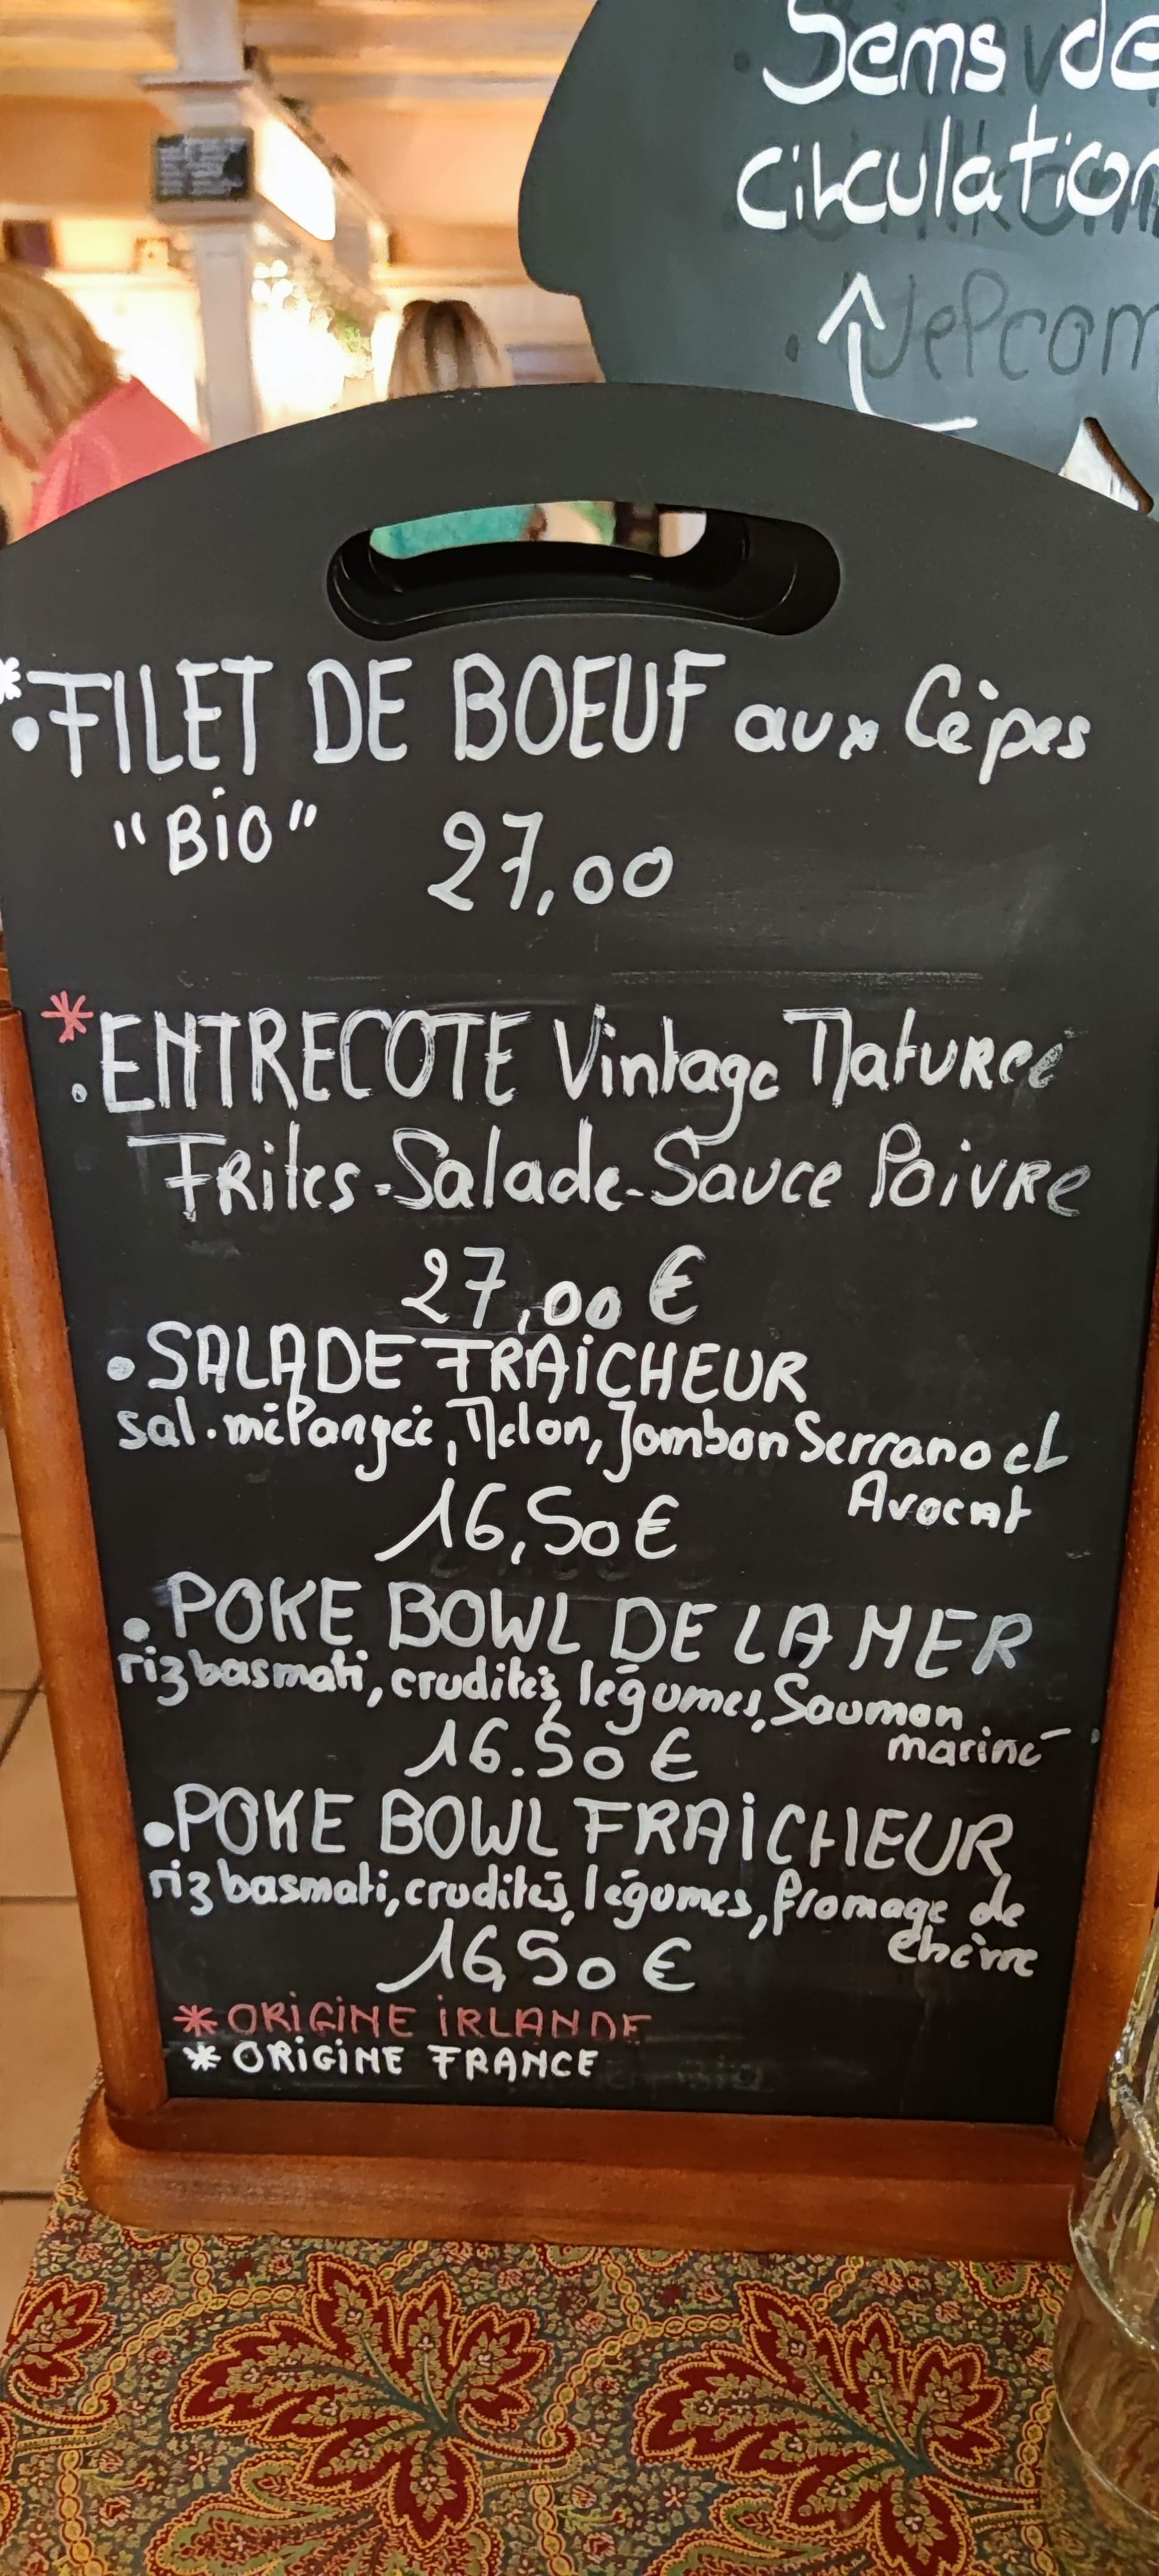 Sems de
circulation
*
•FILET DE BOEUF aux Cèpes
"BIO" 27,00
*
•ENTRECOTE Vintage Maturée
Frites-Salade-Sauce Poivre
27,00 €
•SALADE FRAICHEUR
sal. mélangée, Melon, Jambon Serrano et
Avocat
16,50€
•POKE BOWL DE LA MER
riz basmati, crudités, légumes, Saumon
mariné
16.50 €
•POKE BOWL FRAICHEUR
riz basmati, crudités, légumes, fromage de
Chèvre
16,50 €
* ORIGINE IRLANDE
* ORIGINE FRANCE